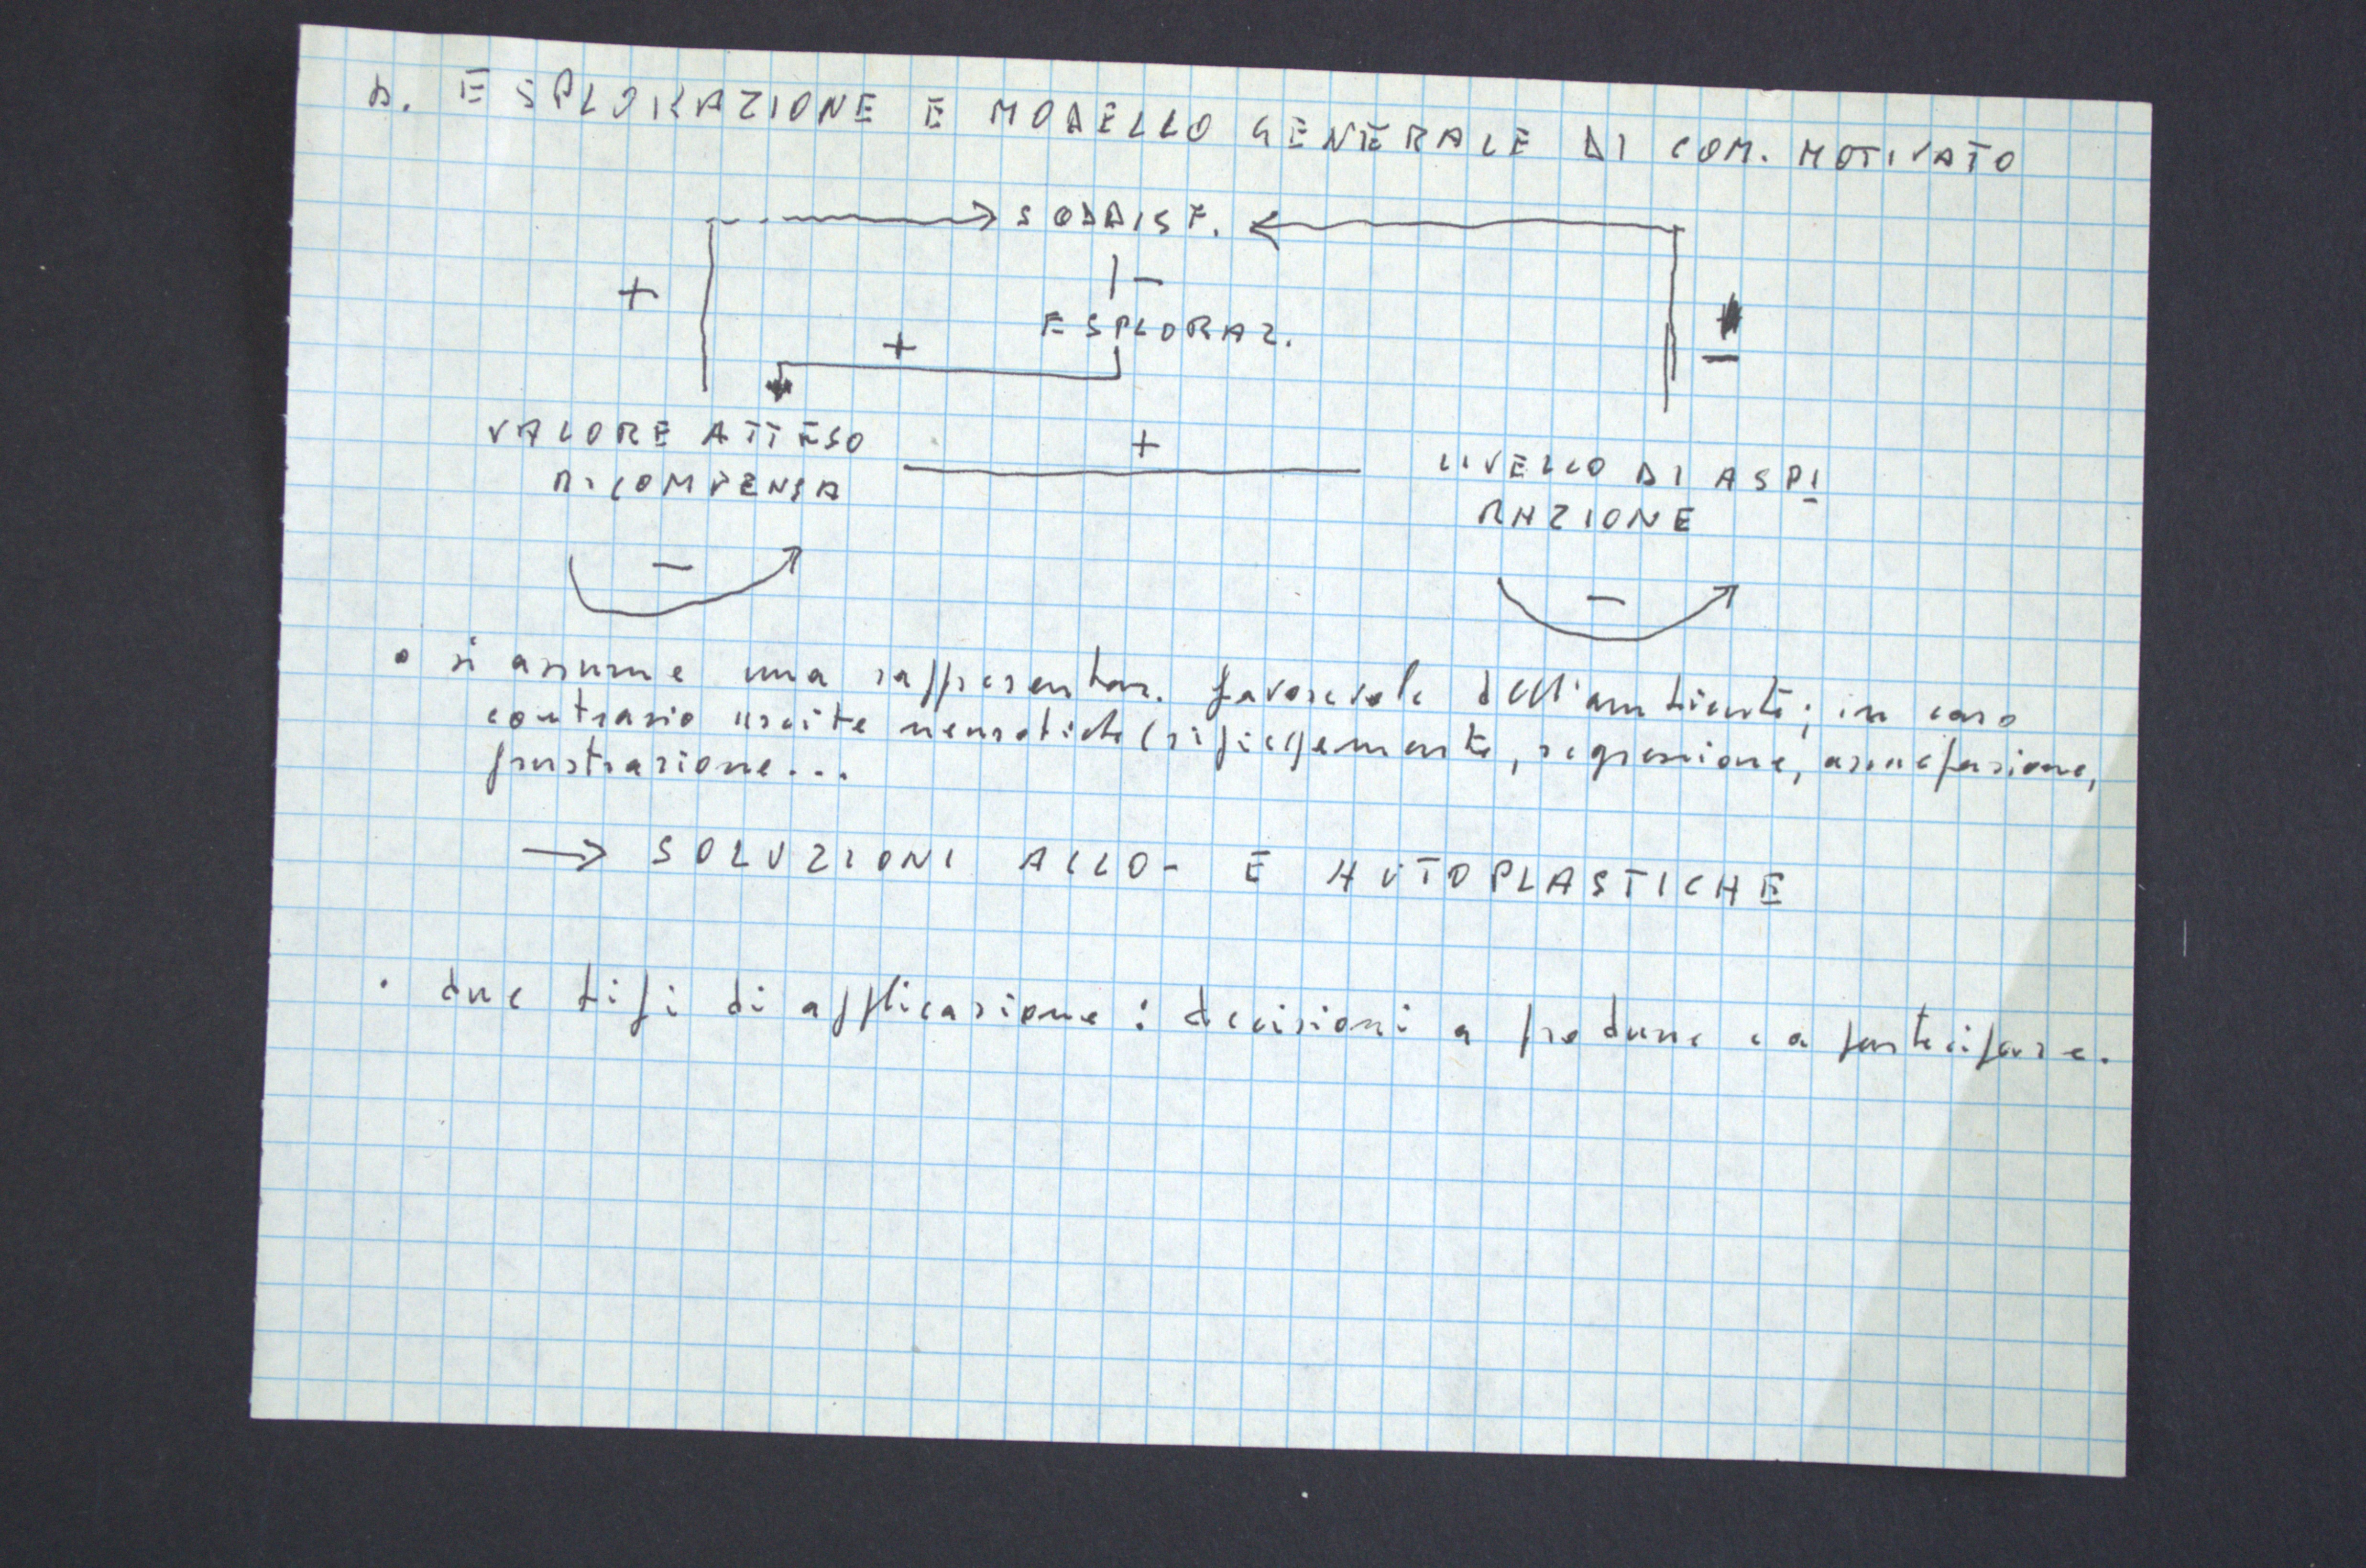 b. ESPLORAZIONE E MODELLO GENERALE DI COM. MOTIVATO
SODDISF.
+ | - -
ESPLORAZ.
+
VALORE ATTESO
RICOMPENSA
+
LIVELLO DI ASPI
RAZIONE
- -
• si assume una rappresentaz. favorevole dell'ambiente; in caso
contrario uscite neurotiche (ripiegamento, regressione, assuefazione,
frustrazione...
→ SOLUZIONI ALLO- E AUTOPLASTICHE
• due tipi di applicazione: decisioni a produrre e a partecipare.